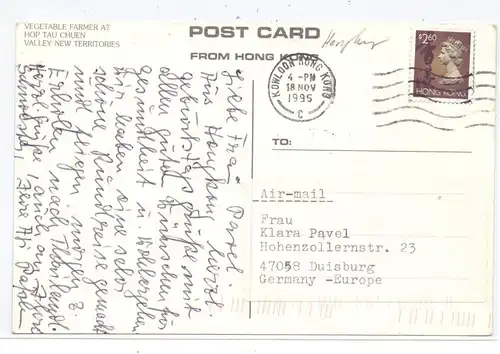 VEGETABLE FARMER AT
HOP TAU CHUEN
VALLEY NEW TERRITORIES
POST CARD
FROM HONG KONG
Hongkong
KOWLOON HONG KONG
4 -PM
18 NOV
1995
C
$2.60
HONG KONG
TO:
Air-mail
Frau
Klara Pavel
Hohenzollernstr. 23
47058 Duisburg
Germany -Europe
Liebe Frau Pavel.
Aus Hongkong herzl.
Geburtstagsgrüße mit
allen guten Wünschen für
Gesundheit u. Wohlergehen
Wir haben eine sehr
schöne Rundreise gemacht
und fliegen morgen z.
Erholen nach Thailand.
Herzl. Grüße, auch an Ihre